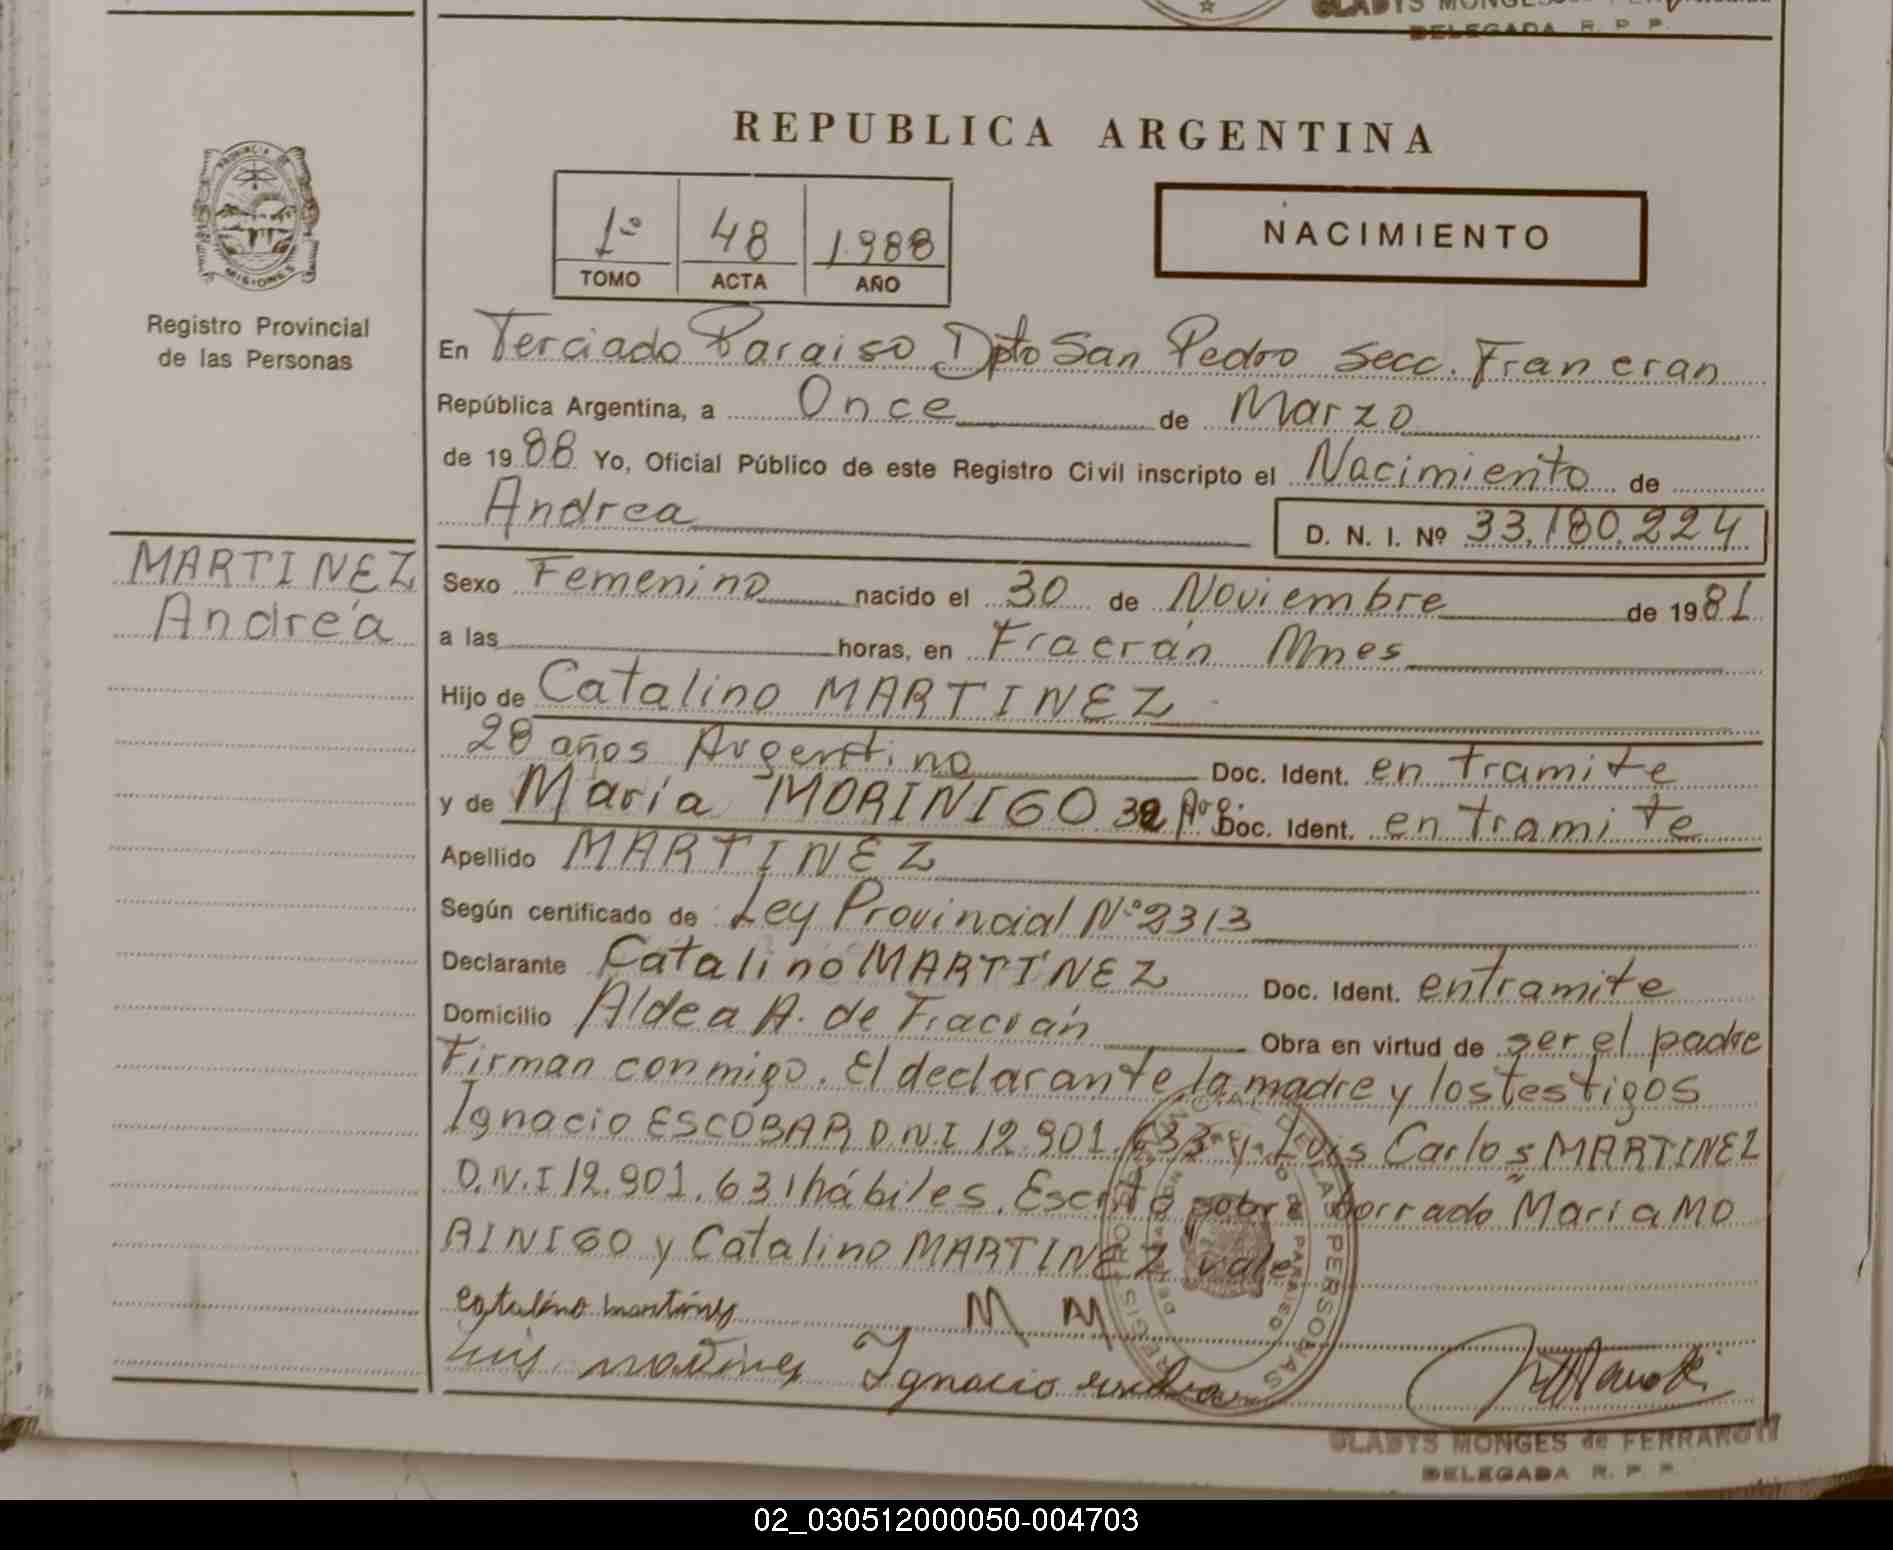 GLADYS MONGES
DELEGADA R. P. P.
REPUBLICA ARGENTINA
PROVINCIA DE
MISIONES
1º 48 1988
TOMO ACTA AÑO
NACIMIENTO
Registro Provincial
de las Personas
En Terciado Paraiso Dpto San Pedro Secc. Franeran
República Argentina, a Once de Marzo
de 1988 Yo, Oficial Público de este Registro Civil inscripto el Nacimiento de
Andrea
D. N. I. Nº 33.180.224
MARTINEZ
Andréa
Sexo Femenino nacido el 30 de Noviembre de 1981
a las horas, en Fracrán Mnes
Hijo de Catalino MARTINEZ
28 años Argentino Doc. Ident. en tramite
y de María MORINIGO 32 Arg. Doc. Ident. en tramite
Apellido MARTINEZ
Según certificado de Ley Provincial Nº 2313
Declarante Catalino MARTINEZ Doc. Ident. en tramite
Domicilio Aldea A. de Fracrán Obra en virtud de ser el padre
Firman conmigo. El declarante, la madre y los testigos
Ignacio ESCOBAR D.N.I 12.901.633 y Luis Carlos MARTINEZ
D.N.I 12.901.631 hábiles. Escrito sobre borrado Maria MO
RINIGO y Catalino MARTINEZ vale
catalino martines
M M
Luis martines Ignacio
GLADYS MONGES de FERRAROTI
DELEGADA R. P. P.
02_030512000050-004703